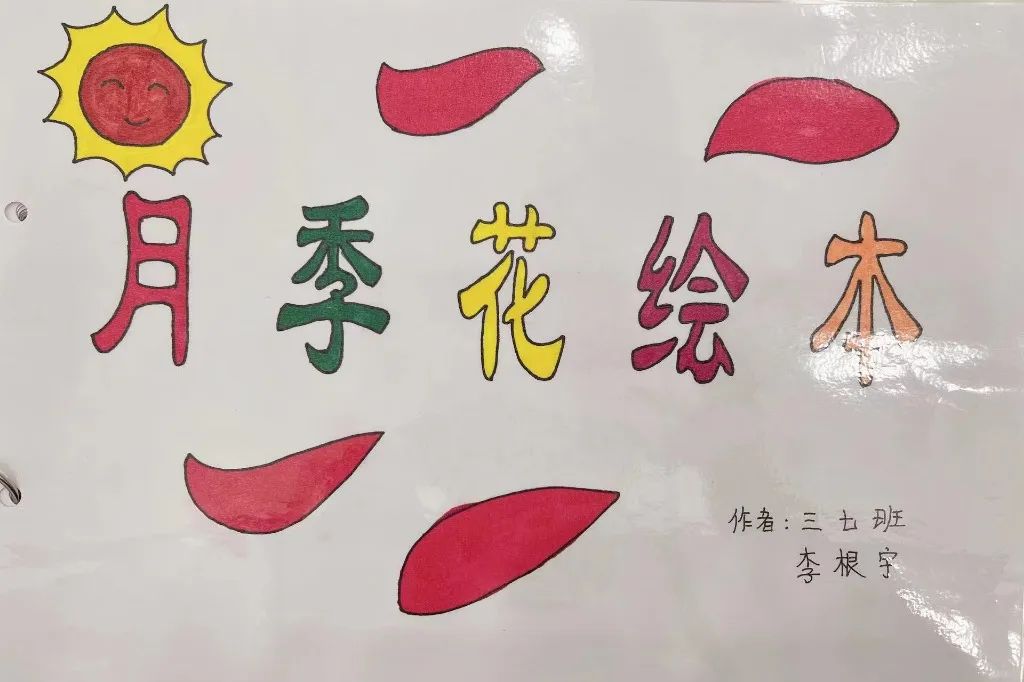 月季花绘本
作者:三七班
李根宇